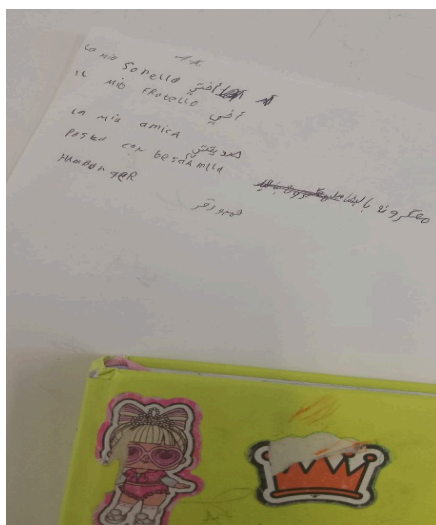 La mia Sorella أختي
il mio FRatello أخي
La mia amica صديقتي
Pasta con besciamlla معكرونة بالبشاميل
HAmBURgeR همبورقر